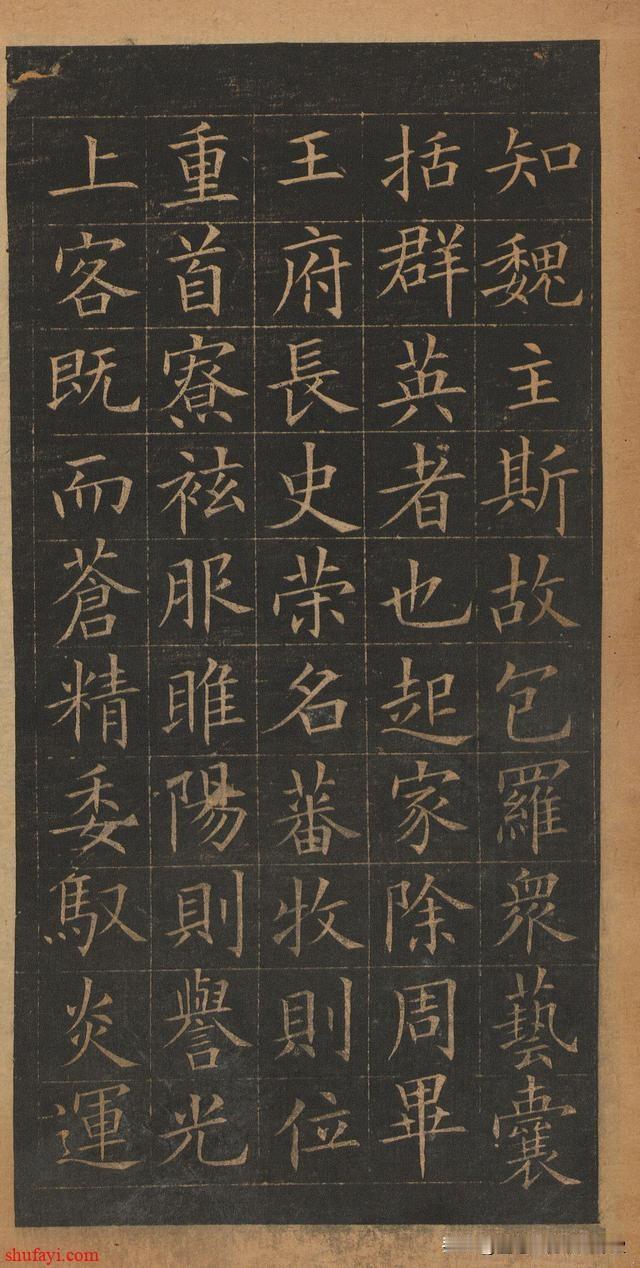 知魏主斯故包羅眾藝囊
括群英者也起家除周畢
王府長史荣名蕃牧則位
重首寮袨服睢陽則譽光
上客既而蒼精委馭炎運
shufayi.com